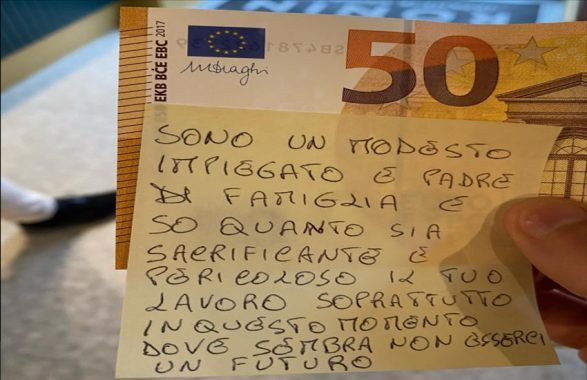 EKB BCE EBC 2017
50
M Draghi
SONO UN MODESTO
IMPIEGATO E PADRE
DI FAMIGLIA E
SO QUANTO SIA
SACRIFICANTE E
PERICOLOSO IL TUO
LAVORO SOPRATTUTTO
IN QUESTO MOMENTO
DOVE SEMBRA NON ESSERCI
UN FUTURO